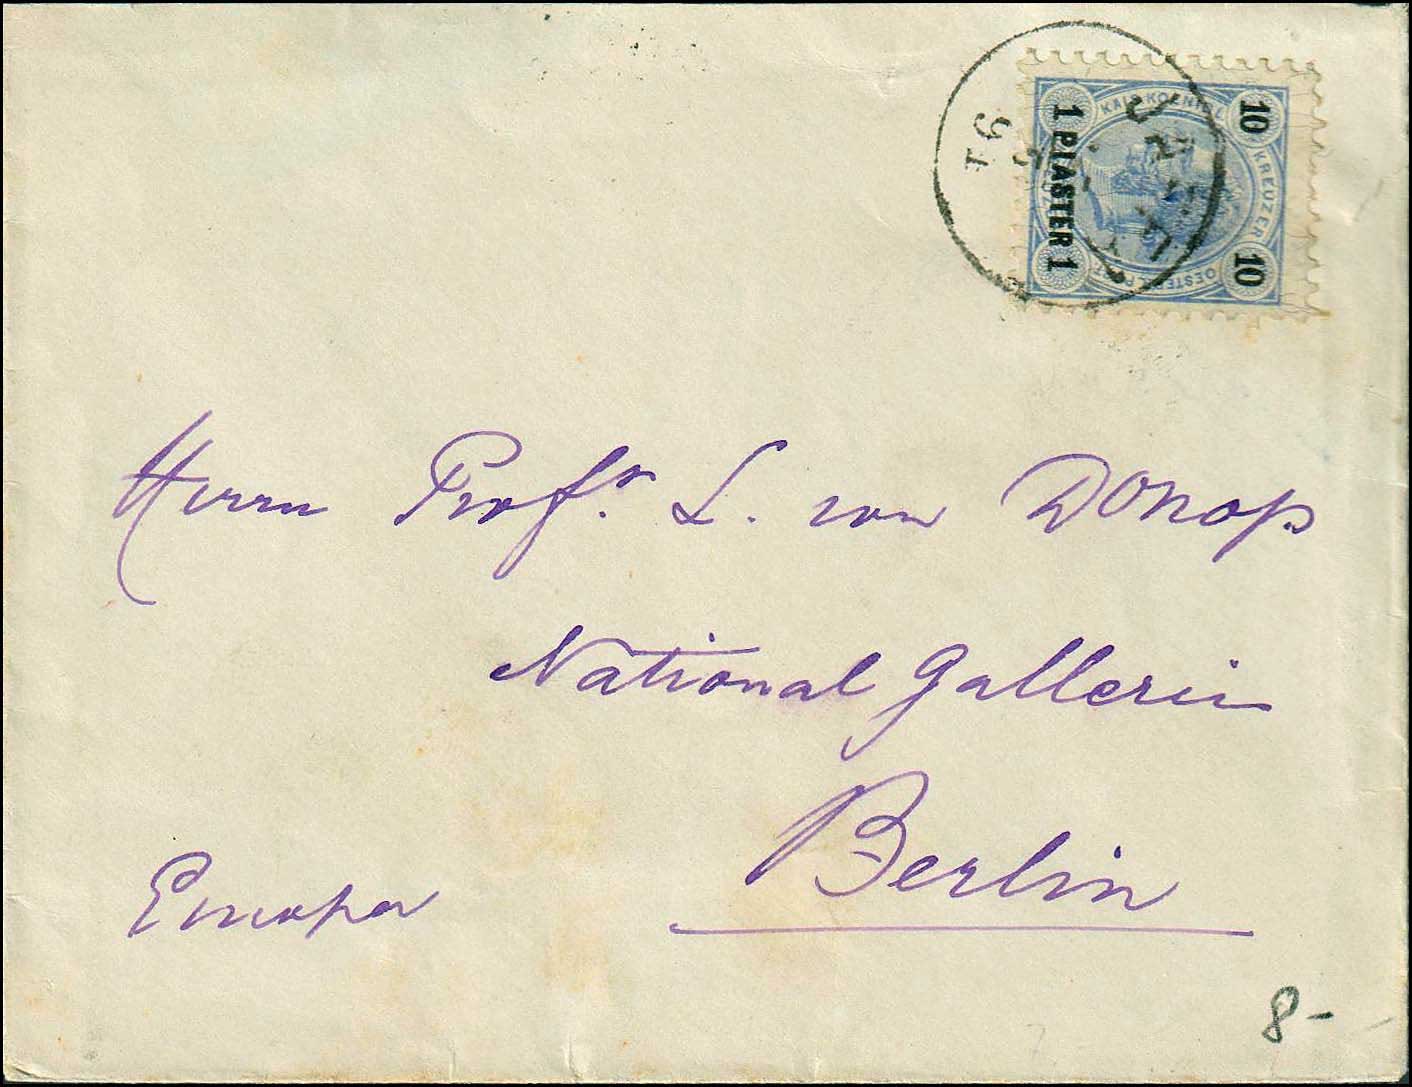 10 KREUZER 10
KAIS. KOENIGL. OESTERR. POST
1 PIASTER 1
Herrn Profr. L. von Donop
National Gallerie
Berlin
Europa
8-